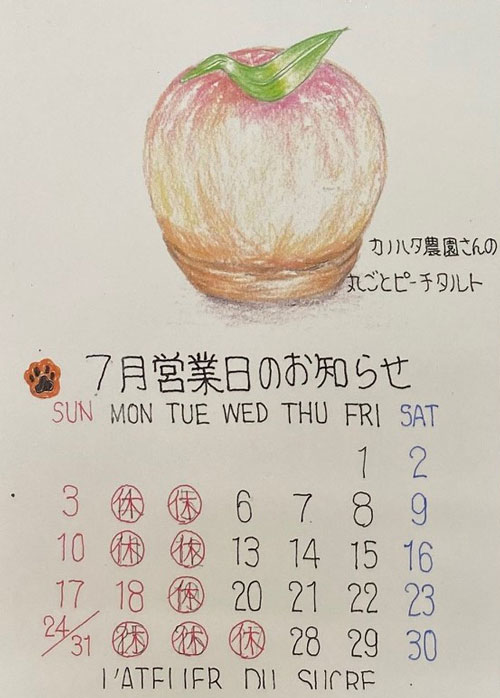 カノハタ農園さんの
丸ごとピーチタルト
7月営業日のお知らせ
SUN MON TUE WED THU FRI SAT
1 2
3 休 休 6 7 8 9
10 休 休 13 14 15 16
17 18 休 20 21 22 23
24/31 休 休 休 28 29 30
L'ATELIER DU SUCRE